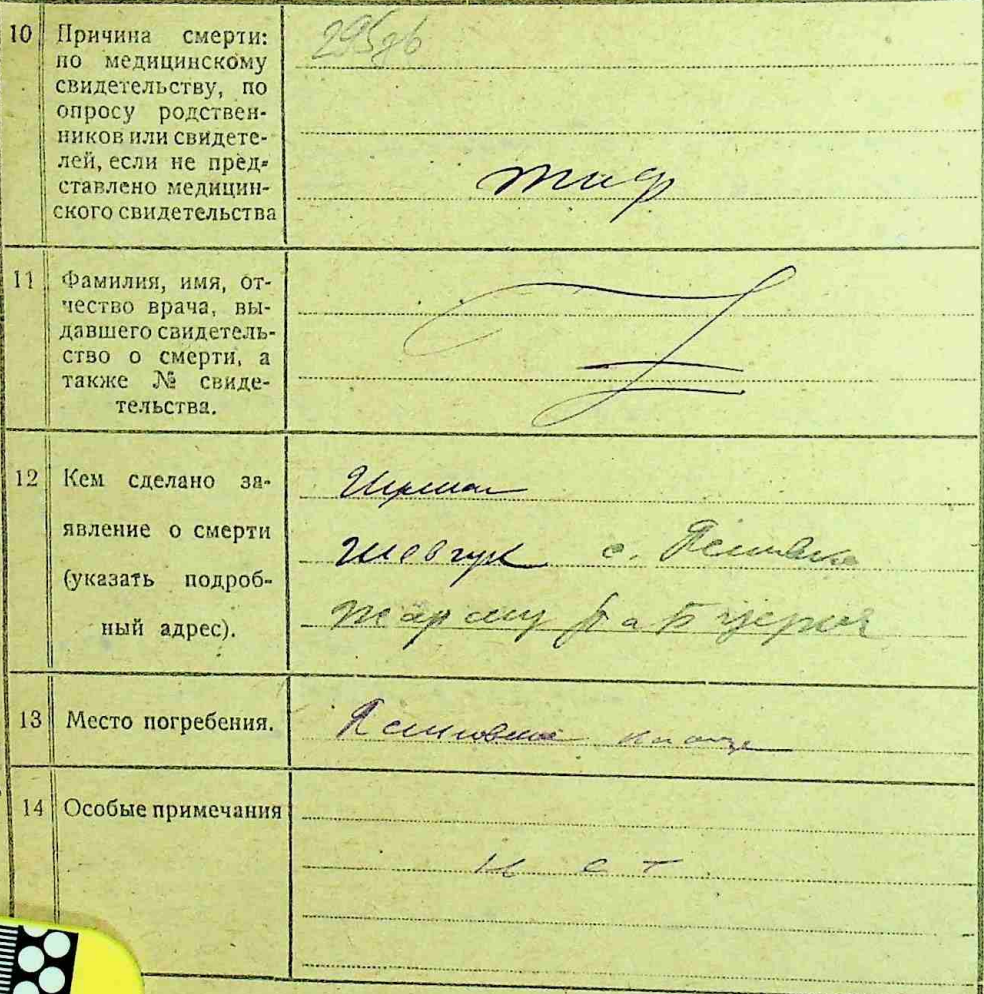 10 Причина смерти:
по медицинскому
свидетельству, по
опросу родствен-
ников или свидете-
лей, если не пред-
ставлено медицин-
ского свидетельства
тиф
11 Фамилия, имя, от-
чество врача, вы-
давшего свидетель-
ство о смерти, а
также № свиде-
тельства.
12 Кем сделано за-
явление о смерти
(указать подроб-
ный адрес).
Шевчук с.
13 Место погребения.
14 Особые примечания
нет